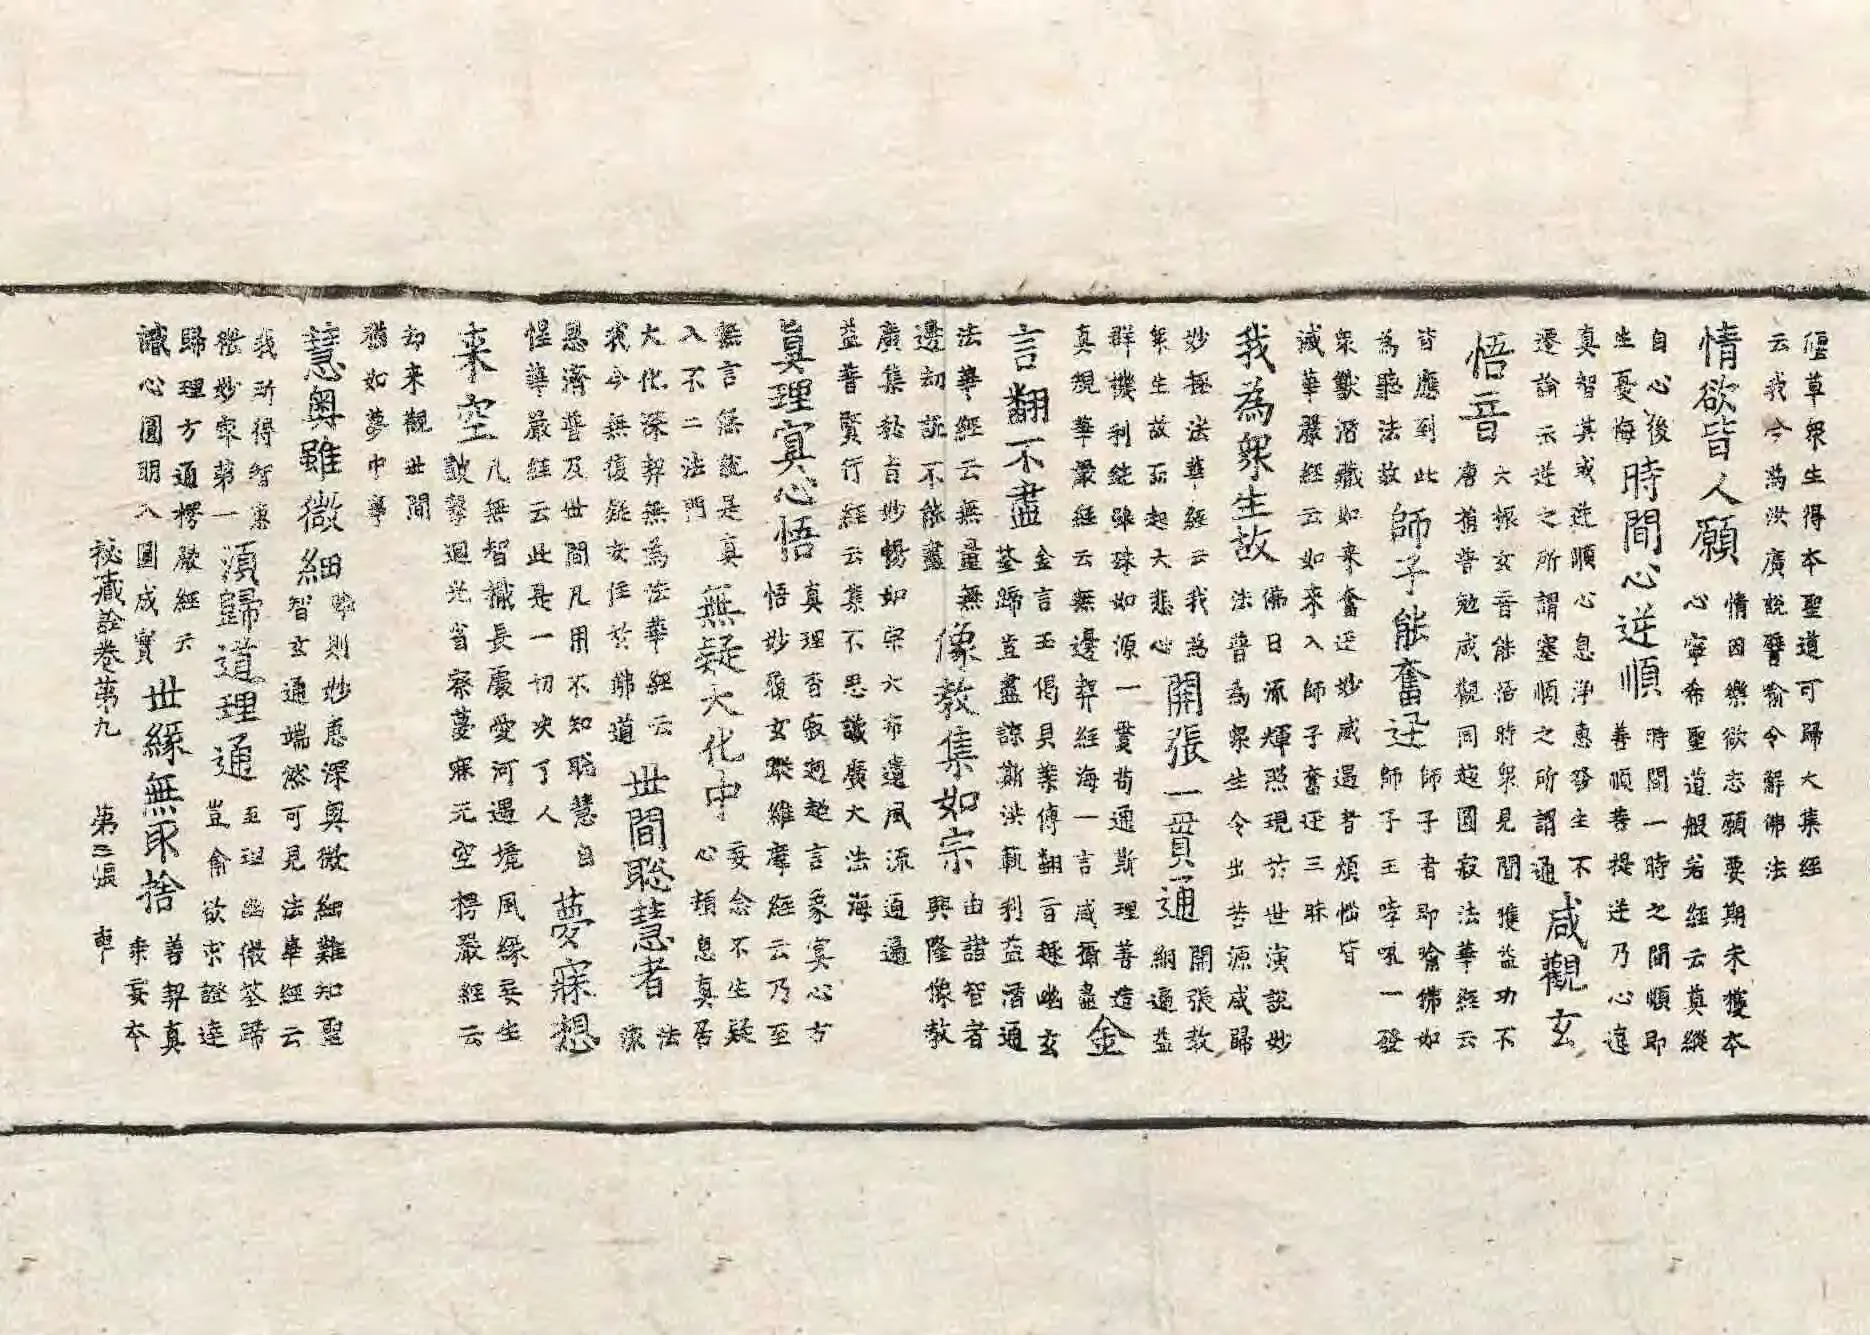 僵草衆生得本聖道可歸大集經
云我今爲汝廣說譬喻令解佛法
情欲皆人願
情因樂欲志願要期未獲本
心寧希聖道般若經云莫縱
自心後
生憂悔
時間心逆順
時間一時之間順即
善順菩提逆乃心違
真智其或逆順心息淨惠發生不
遷論示逆之所謂塞順之所謂通
咸觀玄
悟音
六振玄音能活時衆見聞獲益功不
唐捐普勉咸觀同越圓寂法華經云
皆應到此
為聽法故
師子能奮迅
師子者即喻佛如
師子王哮吼一發
衆獸潛藏如来奮迅妙威遇者煩惱皆
滅華嚴經云如来入師子奮迅三昧
我為衆生故
佛日流輝照現於世演說妙
法普爲衆生令出苦源咸歸
妙極法華經云我爲
衆生故而起大悲心
開張一貫通
開張教
網遍益
群機利鈍雖殊如源一貫苟通斯理善造
真規華嚴經云無邊契經海一言咸演盡
金
言翻不盡
金言玉偈貝葉傳翻言越幽玄
筌蹄豈盡諒斯洪軌利益潛通
法華經云無量無
邊劫說不能盡
像教集如宗
由諧智者
興隆像教
廣集秘言妙暢如宗大布遺風流通遍
益普賢行經云集不思議廣大法海
真理寞心悟
真理杳寂迥越言象寞心方
悟妙履玄蹤維摩經云乃至
無言無說是真
入不二法門
無疑大化中
妄念不生疑
心頓息真居
大化深契無為法華經云
我今無復疑安住於佛道
世間聡慧者
法
流
恩濟普及世間凡用不知聡慧自
悟華嚴經云此是一切决了人
夢寐想
来空
凡無智識長處愛河遇境風緣妄生
擊迴光省察夢寐元空楞嚴經云
却来觀世間
猶如夢中事
慧奧雖微細
則妙惠深奧微細難知聖
智玄通端然可見法華經云
我所得智惠
微妙寂第一
須歸道理通
至理幽微筌蹄
豈喻欲求證達
歸理方通楞嚴經云
識心圓明入圓成實
世緣無取捨
善契真
乘妄本
秘藏詮卷第九 第三張